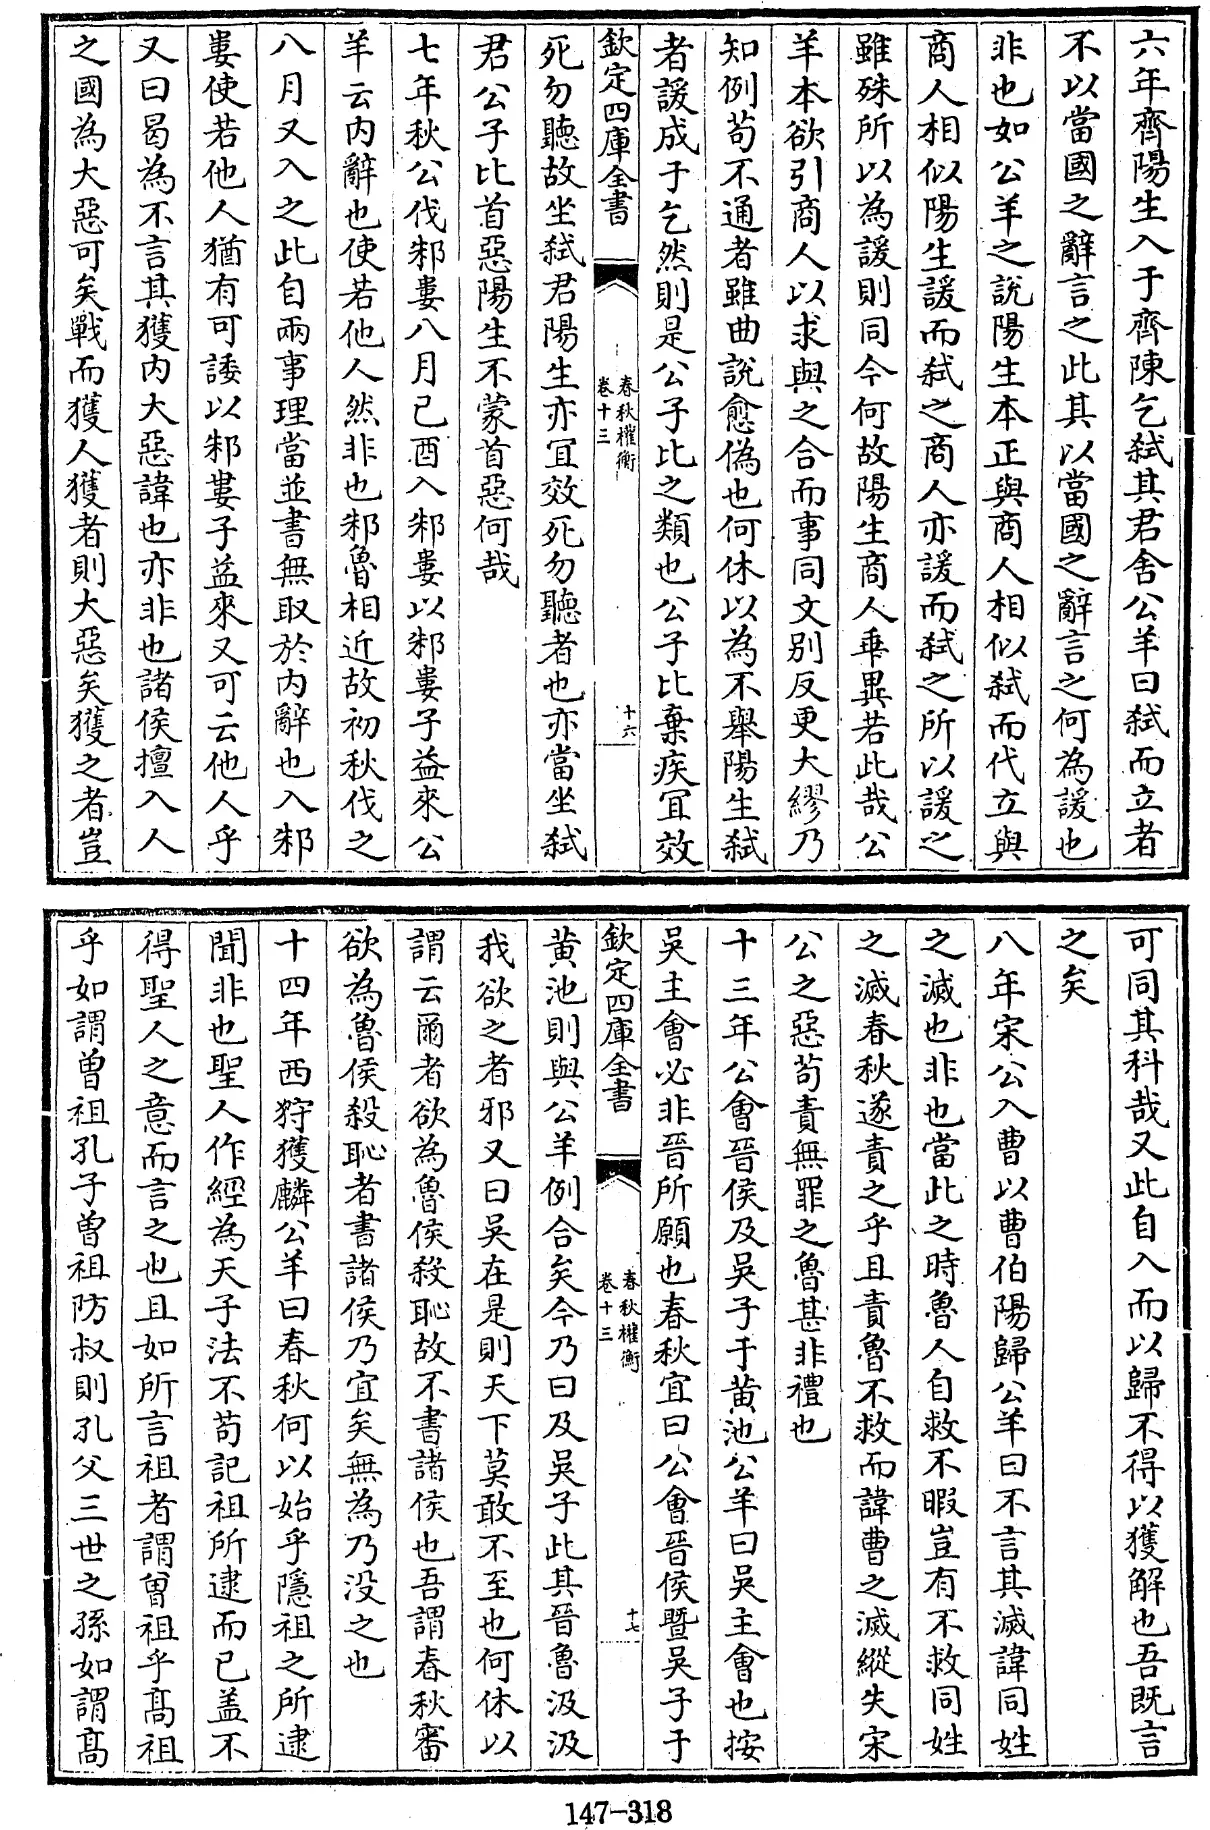 六年齊陽生入于齊陳乞弑其君舍公羊曰弑而立者
不以當國之辭言之此其以當國之辭言之何為諼也
非也如公羊之說陽生本正與商人相似弑而代立與
商人相似陽生諼而弑之商人亦諼而弑之所以諼之
雖殊所以為諼則同今何故陽生商人乖異若此哉公
羊本欲引商人以求與之合而事同文别反更大繆乃
知例苟不通者雖曲說愈偽也何休以為不舉陽生弑
者諼成于乞然則是公子比之類也公子比棄疾宜效
欽定四庫全書
春秋權衡
卷十三
十六
死勿聽故坐弑君陽生亦宜效死勿聽者也亦當坐弑
君公子比首惡陽生不蒙首惡何哉
七年秋公伐邾婁八月己酉入邾婁以邾婁子益來公
羊云内辭也使若他人然非也邾魯相近故初秋伐之
八月又入之此自兩事理當並書無取於内辭也入邾
婁使若他人猶有可諉以邾婁子益來又可云他人乎
又曰曷為不言其獲内大惡諱也亦非也諸侯擅入人
之國為大惡可矣戰而獲人獲者則大惡矣獲之者豈
可同其科哉又此自入而以歸不得以獲解也吾既言
之矣
八年宋公入曹以曹伯陽歸公羊曰不言其滅諱同姓
之滅也非也當此之時魯人自救不暇豈有不救同姓
之滅春秋遂責之乎且責魯不救而諱曹之滅縱失宋
公之惡苟責無罪之魯甚非禮也
十三年公會晉侯及吳子于黄池公羊曰吳主會也按
吳主會必非晉所願也春秋宜曰公會晉侯暨吳子于
欽定四庫全書
春秋權衡
卷十三
十七
黄池則與公羊例合矣今乃曰及吳子此其晉魯汲汲
我欲之者邪又曰吳在是則天下莫敢不至也何休以
謂云爾者欲為魯侯殺恥故不書諸侯也吾謂春秋審
欲為魯侯殺恥者書諸侯乃宜矣無為乃没之也
十四年西狩獲麟公羊曰春秋何以始乎隱祖之所逮
聞非也聖人作經為天子法不苟記祖所逮而已盖不
得聖人之意而言之也且如所言祖者謂曾祖乎髙祖
乎如謂曾祖孔子曾祖防叔則孔父三世之孫如謂髙
147-318